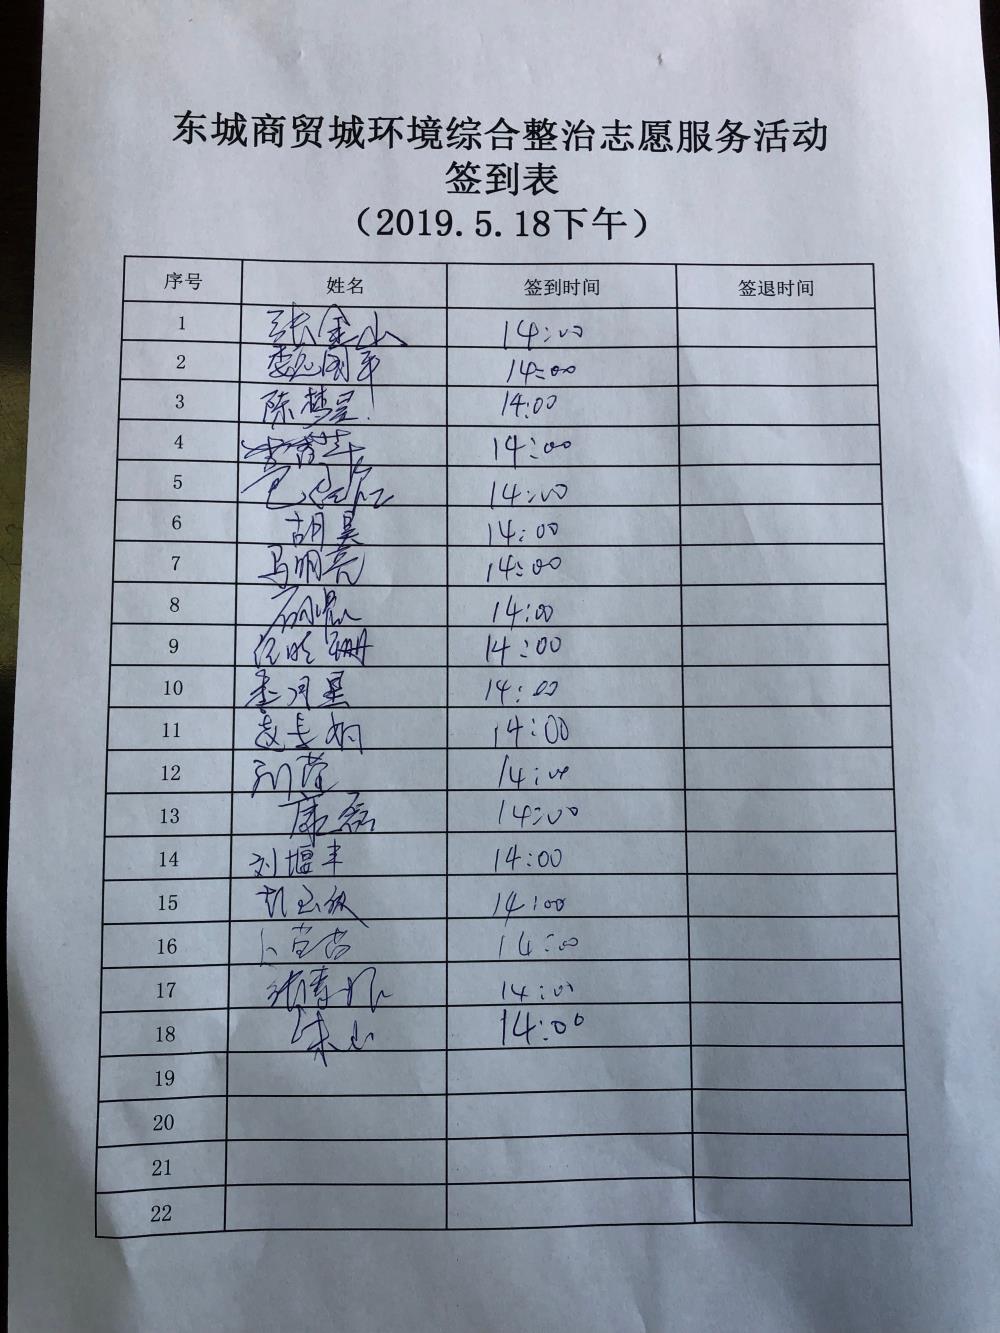 东城商贸城环境综合整治志愿服务活动
签到表
（2019.5.18下午）
序号 姓名 签到时间 签退时间
1 张金山 14:00
2 14:00
3 陈梦星 14:00
4 14:00
5 14:00
6 胡昊 14:00
7 马明亮 14:00
8 14:00
9 14:00
10 14:00
11 14:00
12 刘莹 14:00
13 康磊 14:00
14 刘堰丰 14:00
15 14:00
16 14:00
17 14:00
18 朱山 14:00
19
20
21
22